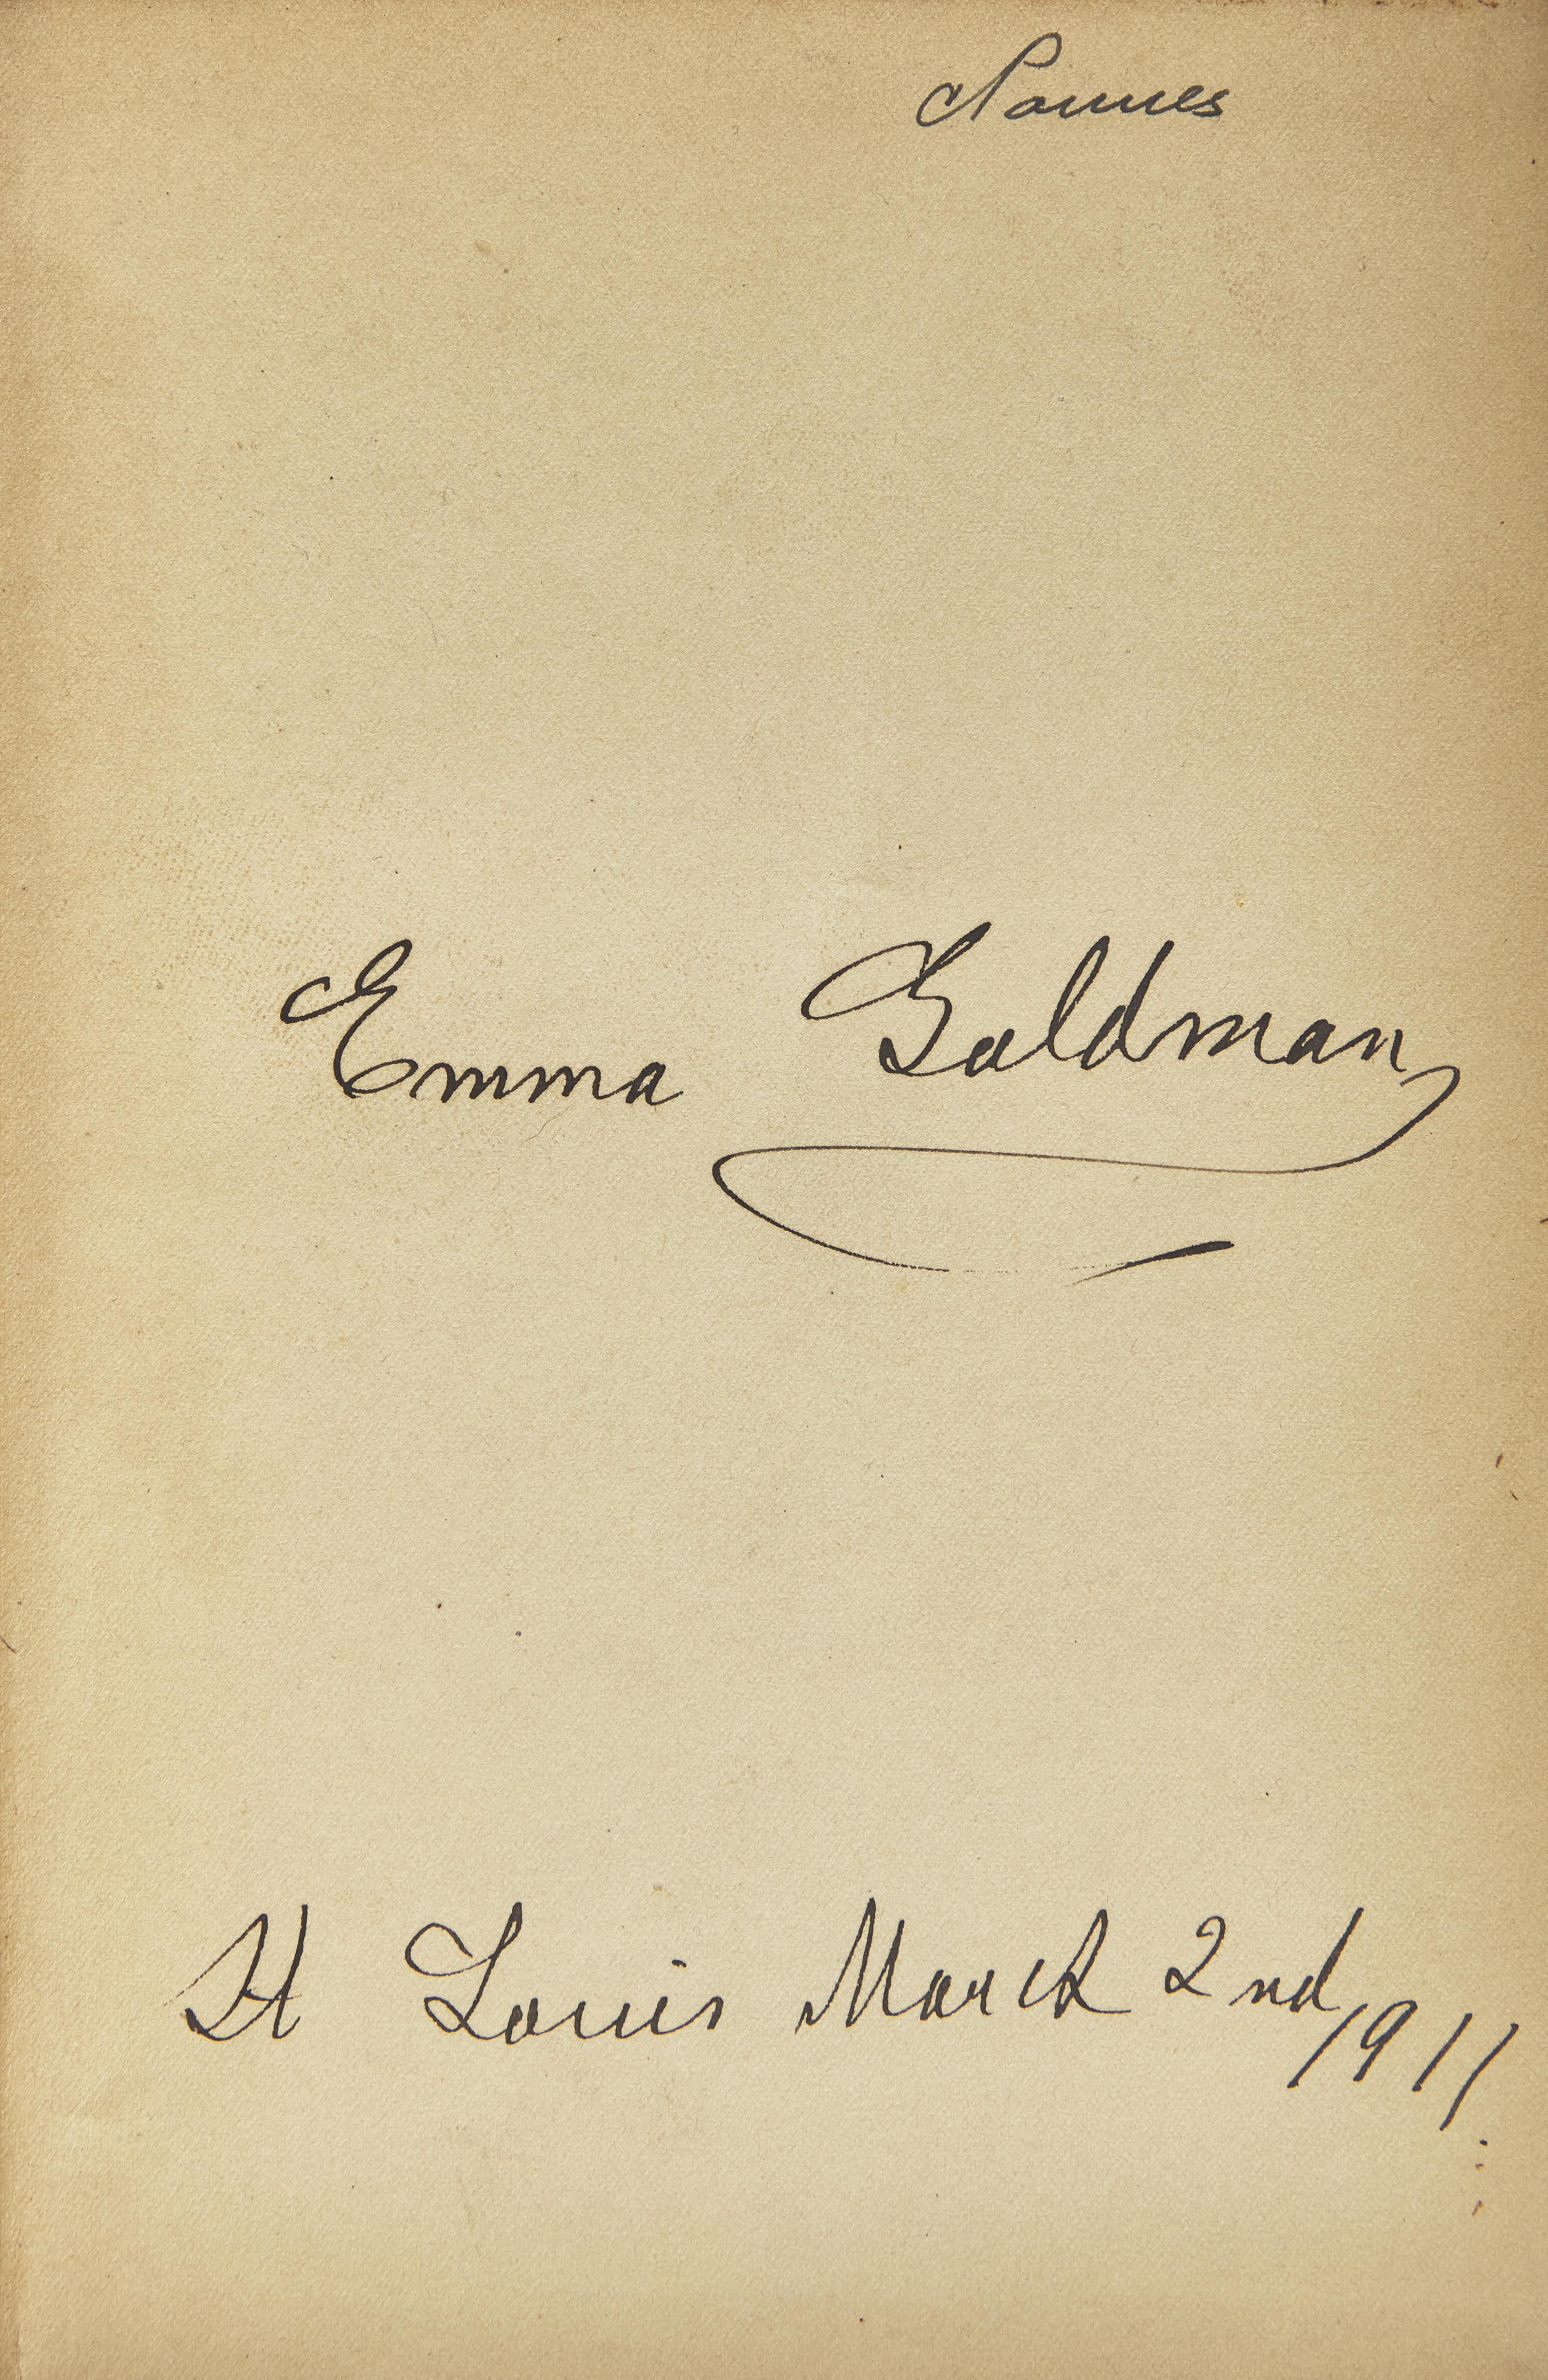 Emma Goldman
St Louis March 2nd, 1911